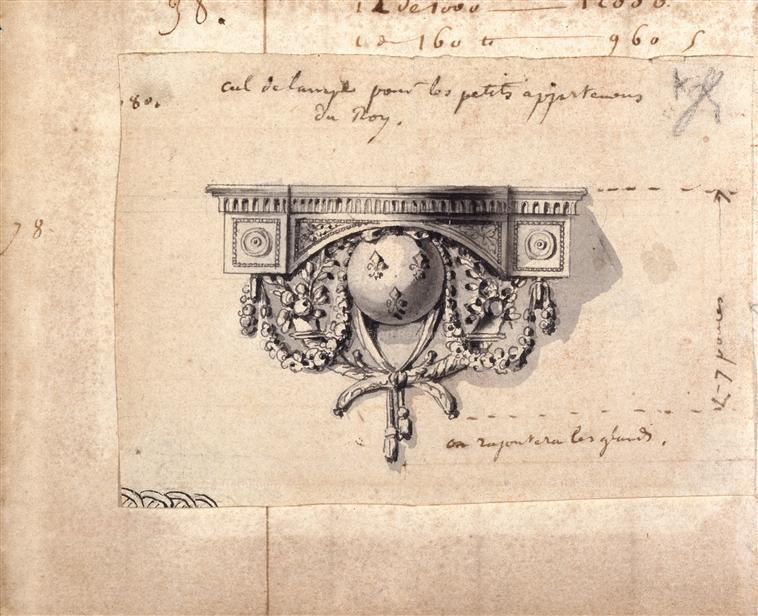 98.
12 de 1000 — 12000.
6 de 160 tt — 960 s
80.
cul de lampe pour les petits appartemens
du Roy.
78
2-7 pouces
on rajoutera les glands.